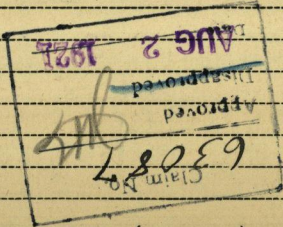 Claim No. 63087
Approved
Disapproved
AUG 2 1921